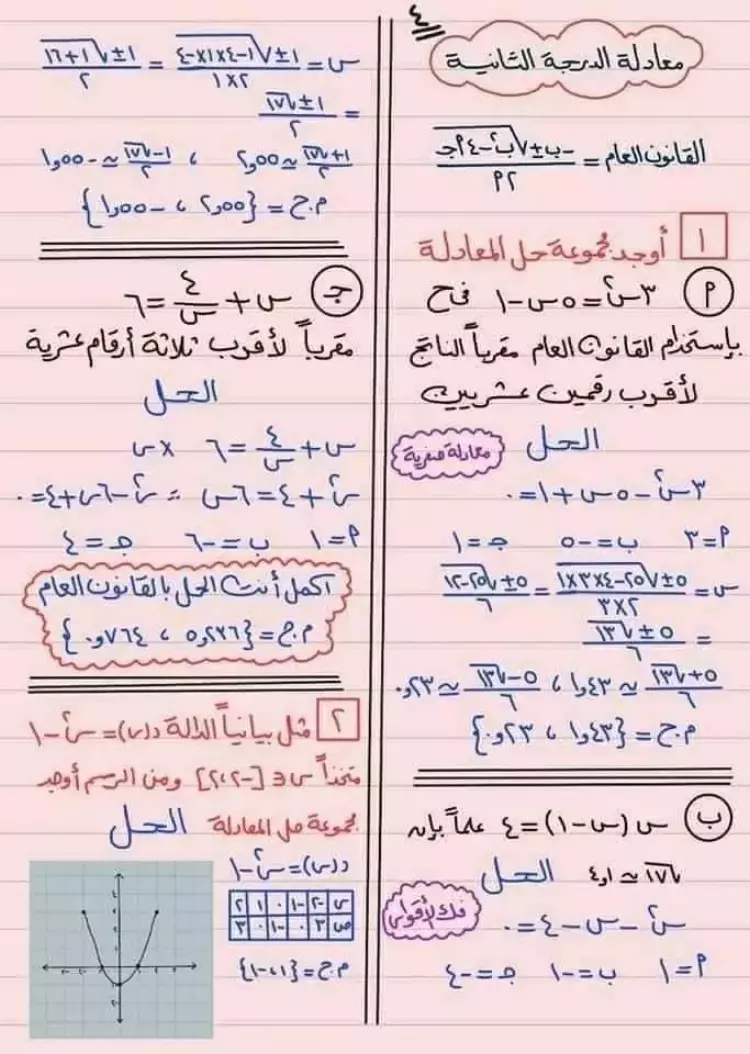 ٤
معادلة الدرجة الثانية
القانون العام = (-ب ± √(ب² - ٤ أ جـ)) / ٢ أ
١ أوجد مجموعة حل المعادلة
أ ٣س² = ٥س - ١ في ح
بإستخدام القانون العام مقرباً الناتج
لأقرب رقمين عشريين
الحل
معادلة صفرية
٣س² - ٥س + ١ = ٠
أ = ٣ ب = -٥ جـ = ١
س = (٥ ± √(٢٥ - ٤×٣×١)) / (٢×٣) = (٥ ± √(٢٥ - ١٢)) / ٦
= (٥ ± √١٣) / ٦
(٥ + √١٣) / ٦ ≃ ١,٤٣ ، (٥ - √١٣) / ٦ ≃ ٠,٢٣
م.ح = {١,٤٣ ، ٠,٢٣}
ب س (س - ١) = ٤ علماً بإن
√١٧ ≃ ٤,١
الحل
فك الأقواس
س² - س - ٤ = ٠
أ = ١ ب = -١ جـ = -٤
س = (١ ± √(١ - ٤×١×-٤)) / (٢×١) = (١ ± √(١ + ١٦)) / ٢
= (١ ± √١٧) / ٢
(١ + √١٧) / ٢ ≃ ٢,٥٥ ، (١ - √١٧) / ٢ ≃ -١,٥٥
م.ح = {٢,٥٥ ، -١,٥٥}
جـ س + ٤/س = ٦
مقرباً لأقرب ثلاثة أرقام عشرية
الحل
س + ٤/س = ٦ × س
س² + ٤ = ٦س ∴ س² - ٦س + ٤ = ٠
أ = ١ ب = -٦ جـ = ٤
اكمل أنت الحل بالقانون العام
م.ح = {٥,٢٣٦ ، ٠,٧٦٤}
٢ مثل بيانياً الدالة د(س) = س² - ١
متخذاً س ∈ [-٢،٢] ومن الرسم أوجد
مجموعة حل المعادلة
الحل
د(س) = س² - ١
س -٢ -١ ٠ ١ ٢
ص ٣ ٠ -١ ٠ ٣
م.ح = {١ ، -١}